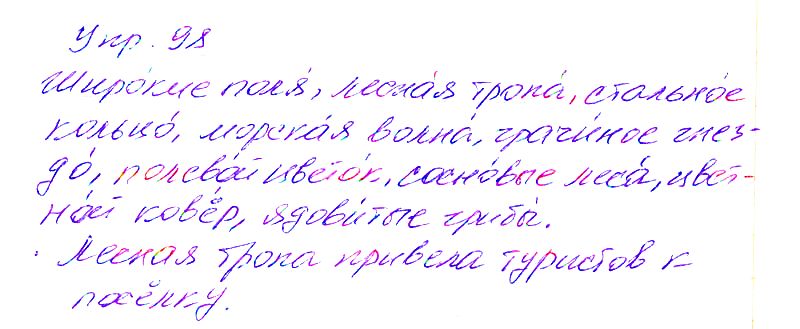 Упр. 98
Широ́кие поля́, лесна́я тропа́, стально́е
кольцо́, морска́я волна́, грачи́ное гнез-
до́, полево́й цвето́к, сосно́вые леса́, цвет-
но́й ковёр, ядови́тые грибы́.
Лесная тропа привела туристов к
посёлку.